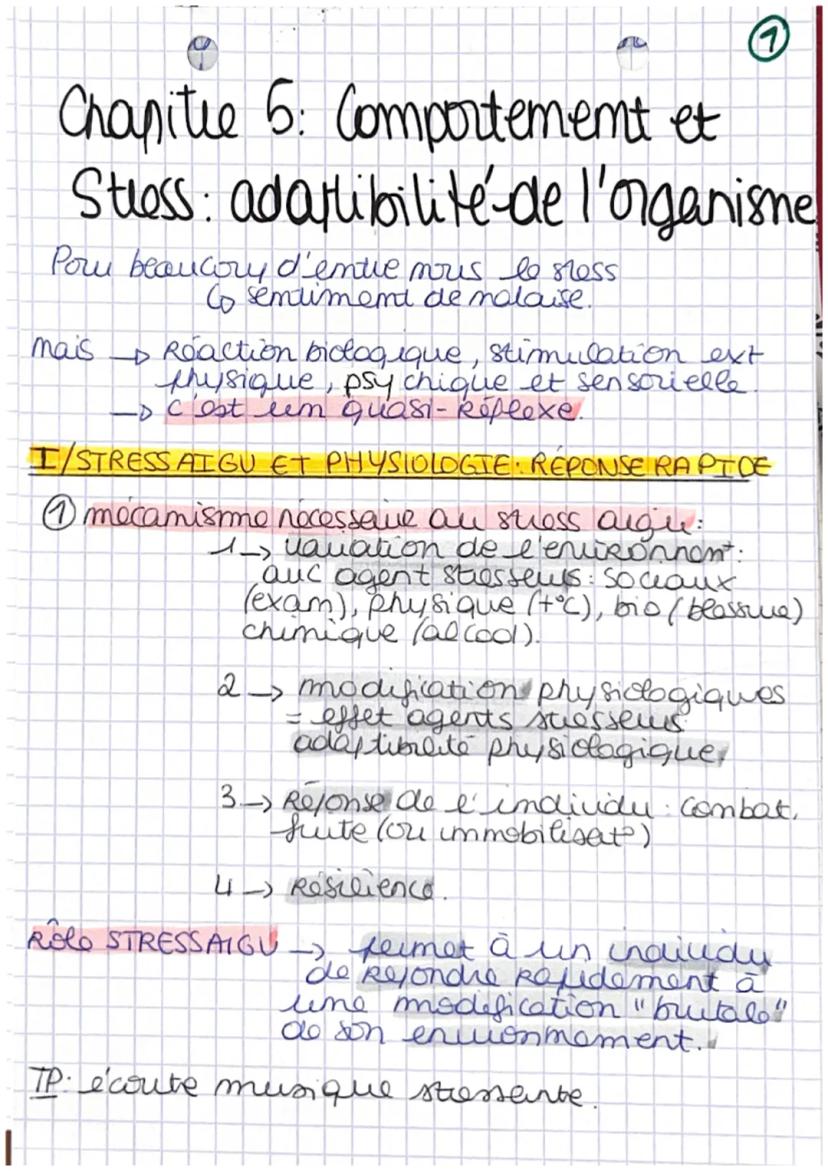 ①
Chapitre 5: Comportement et
Stress: adaptibilité de l'organisme
Pour beaucoup d'entre nous le stress
↳ sentiment de malaise.
mais → Réaction biologique, stimulation ext
physique, psychique et sensorielle.
→ c'est un quasi-réflexe.
I/STRESS AIGU ET PHYSIOLOGIE: RÉPONSE RAPIDE
① mécanisme nécessaire au stress aigu:
1 → variation de l'environnemt:
avc agent stresseurs: sociaux
(exam), physique (t°C), bio (blessure)
chimique (alcool).
2 → modification physiologiques
= effet agents stresseurs
adaptibilité physiologique.
3 → Réponse de l'individu: combat,
fuite (ou immobilisat°)
4 → Résilience.
Rôle STRESS AIGU → permet à un individu
de répondre rapidement à
une modification "brutale"
de son environnement.
TP: écoute musique stressante.